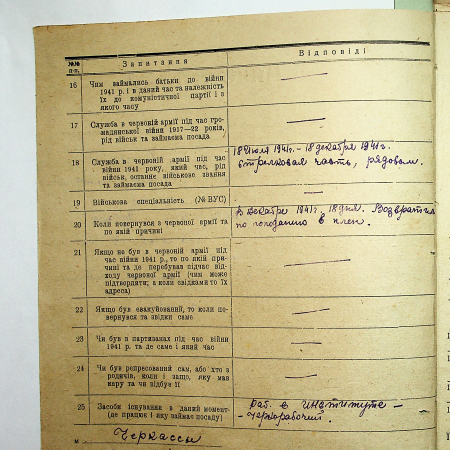 №№ п-п. Запитання Відповіді
16 Чим займались батьки до війни
1941 р. і в даний час та належність
їх до комуністичної партії і з
якого часу
17 Служба в червоній армії під час гро-
мадянської війни 1917—22 років,
рід військ та займаєма посада
18 Служба в червоній армії під час
війни 1941 року, який час, рід
військ, останнє військове звання
та займаєма посада
18 июля 1941г. – 18 декабря 1941г.
стрелковая часть, рядовым.
19 Військова спеціальність (№ ВУС)
20 Коли повернувся з червоної армії та
по якій причині
В декабре 1941г., 18 дня. Возвратился
по попаданию в плен.
21 Якщо не був в червоній армії під
час війни 1941 р., то по якій при-
чині та де перебував підчас від-
ходу червоної армії (чим може
підтвердити; а коли свідками то їх
адреса)
22 Якщо був евакуйований, то коли по-
вернувся та звідки саме
23 Чи був в партизанах під час війни
1941 р. та де саме і який час
24 Чи був репресований сам, або хто з
родичів, коли і защо, яку мав
кару та чи відбув її
25 Засоби існування в даний момент-
(де працює і яку займає посаду)
раб. в институте –
– чернорабочий.
м Черкассы